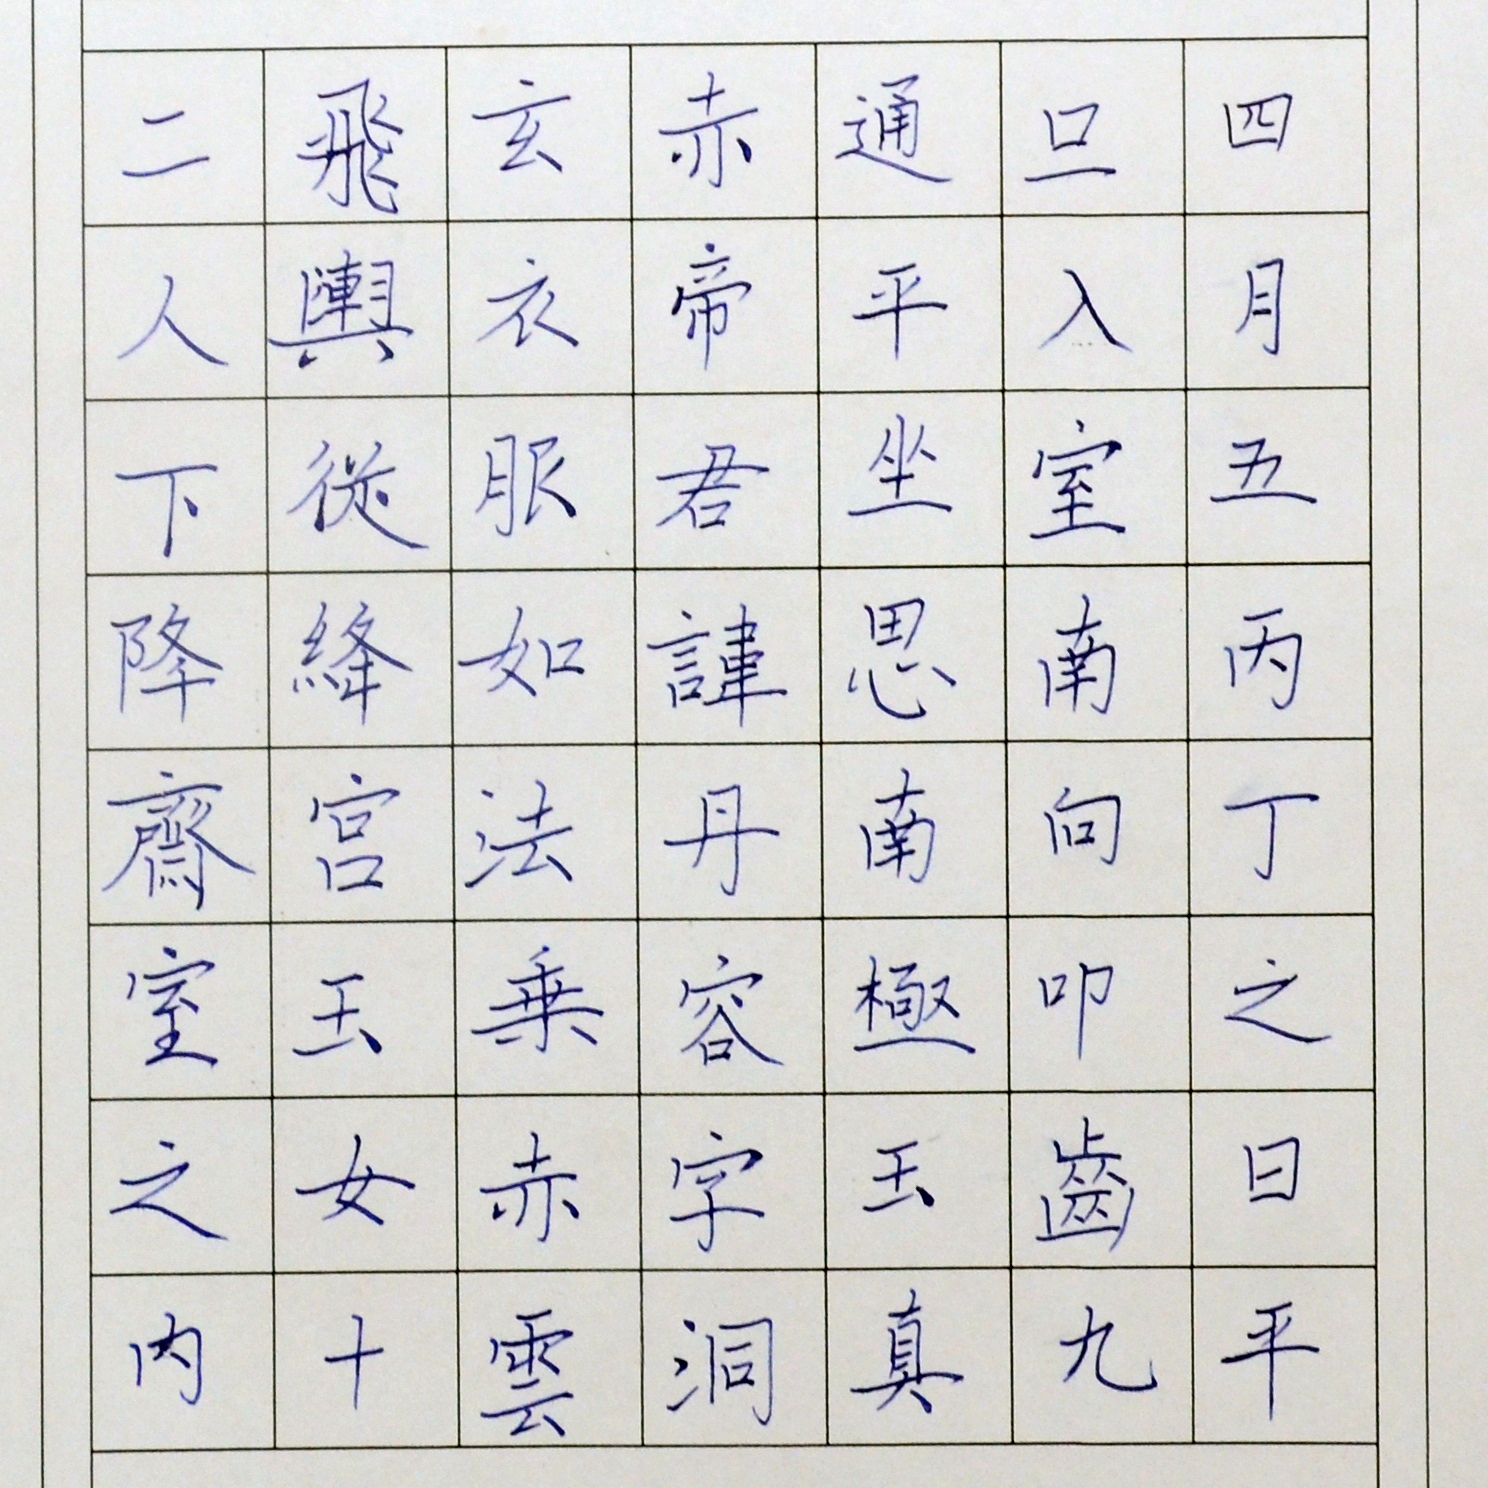 四月五丙丁之日平
旦入室南向叩齒九
通平坐思南極玉真
赤帝君諱丹容字洞
玄衣服如法乘赤雲
飛輿從絳宮玉女十
二人下降齋室之內